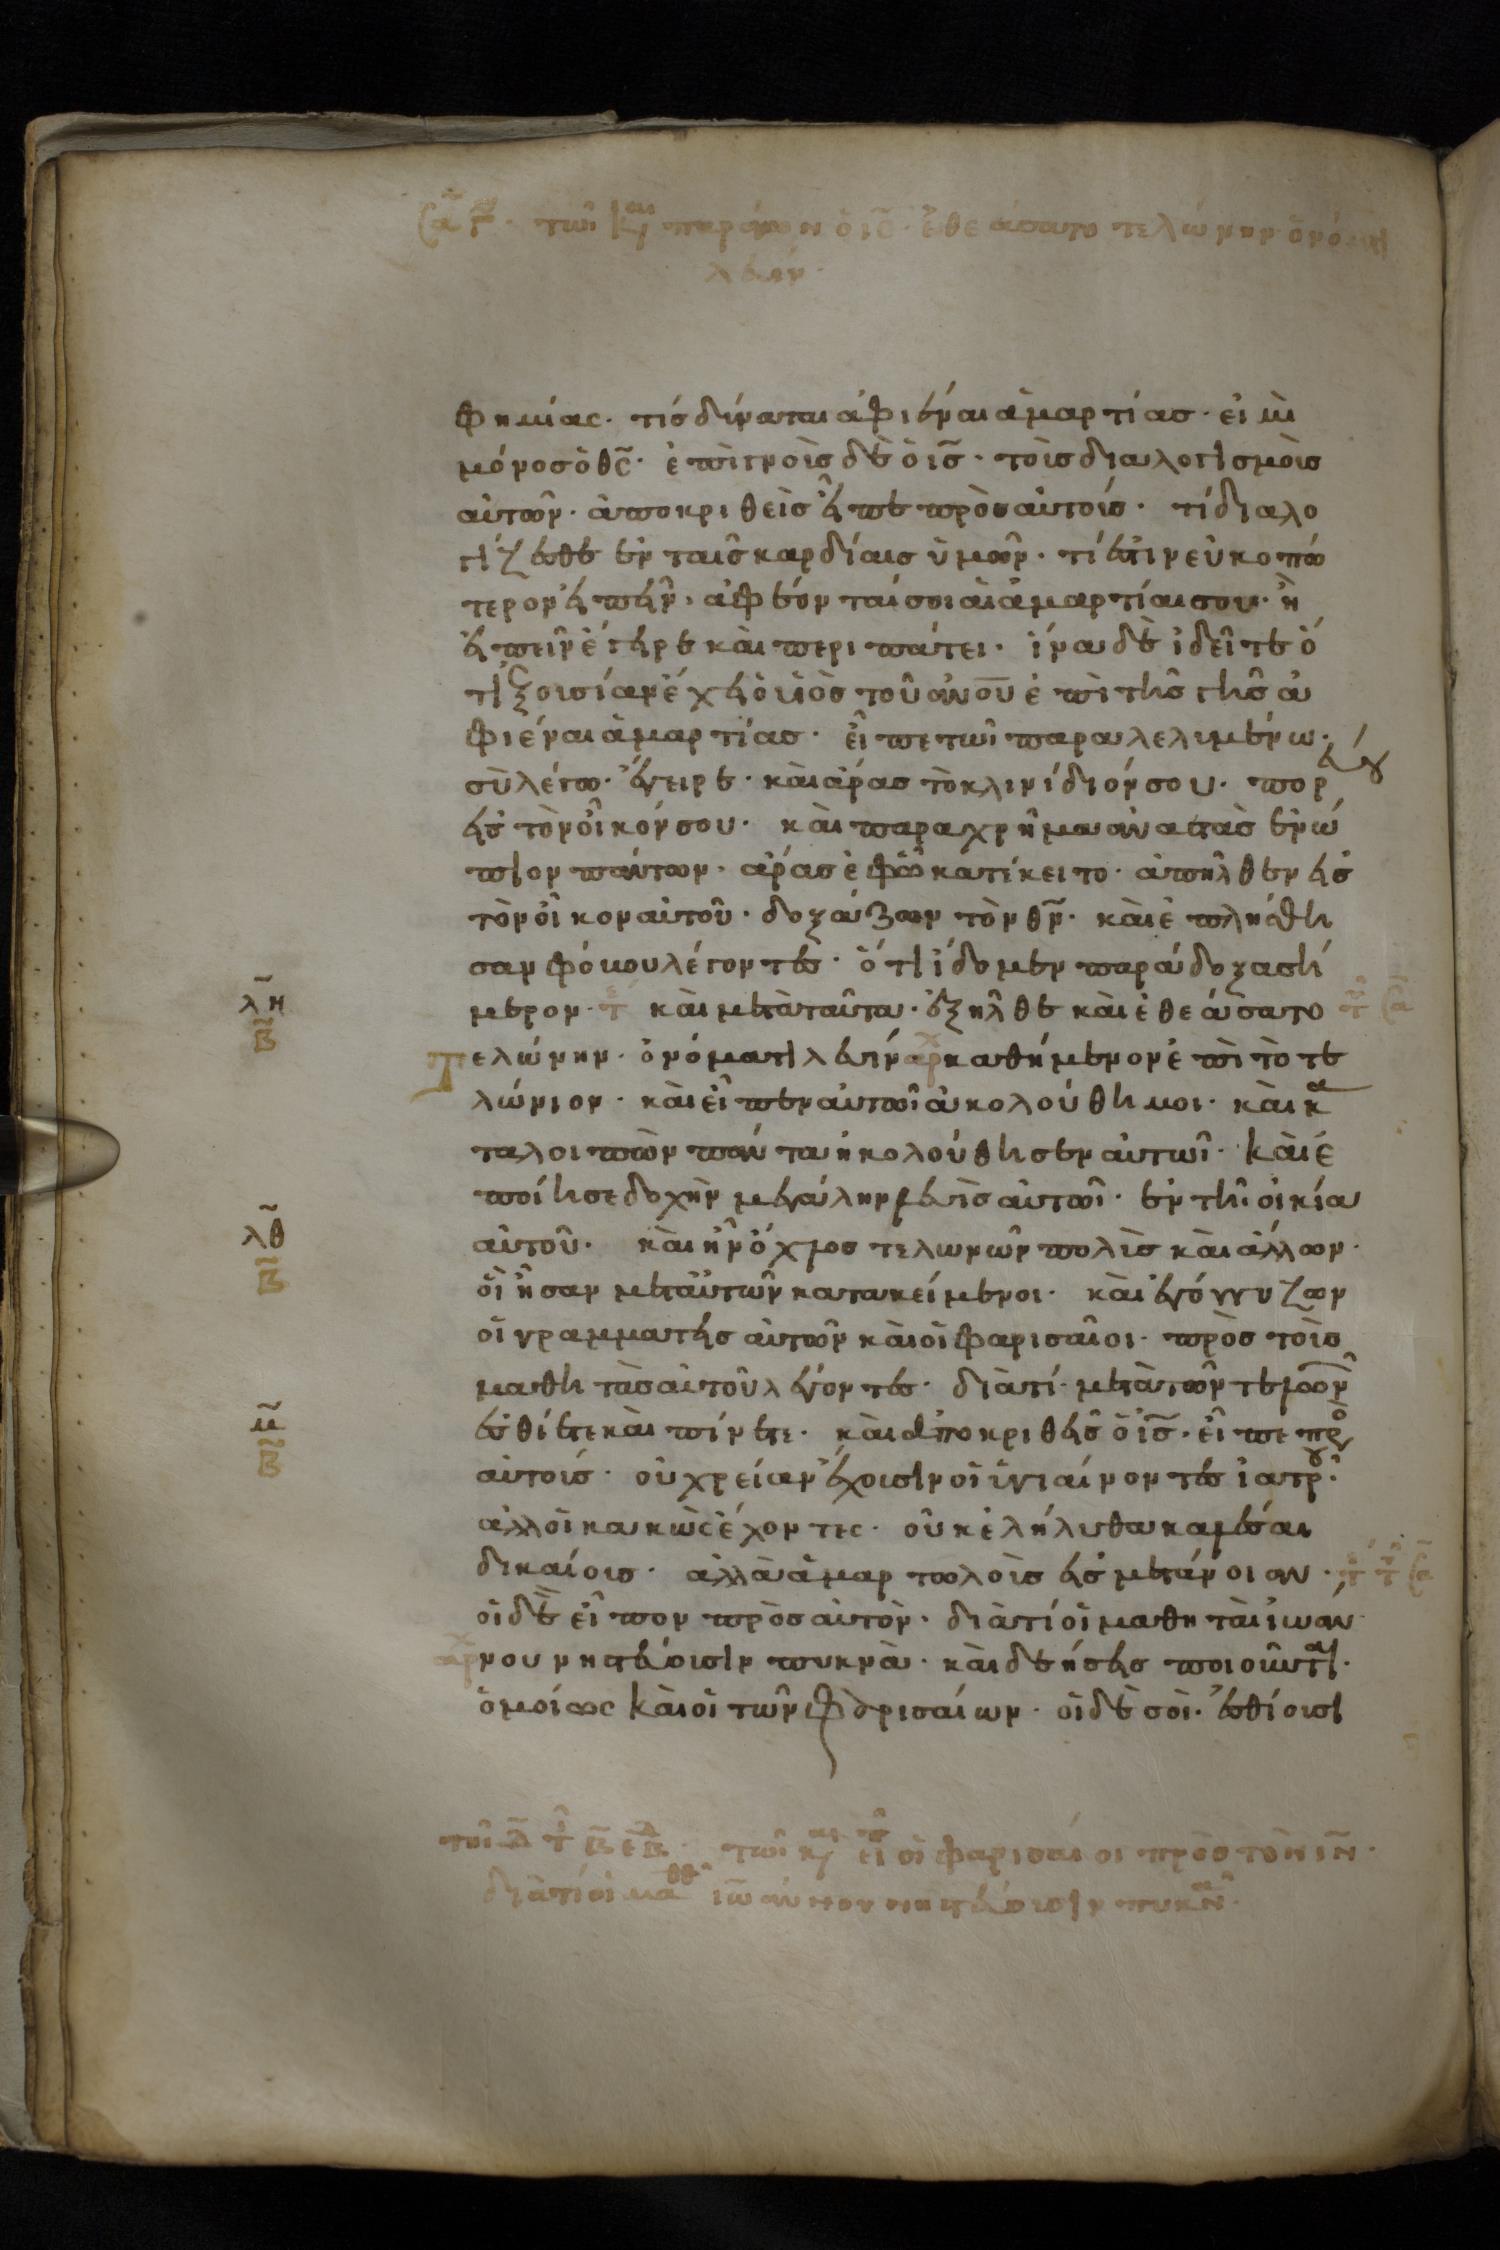 τῶι κ(αι) παράγων ὁ ις̅. ἐθεάσατο τελώνην ὀνόματι
λευίν.
φημίας. τίς δύναται ἀφιέναι ἁμαρτίας. εἰ μὴ
μόνος ὁ θς̅. ἐπιγνοὺς δὲ ὁ ις̅. τοὺς διαλογισμοὺς
αὐτῶν. ἀποκριθεὶς εἶπε πρὸς αὐτούς. τί διαλο
γίζεσθε ἐν ταῖς καρδίαις ὑμῶν. τί ἐστιν εὐκοπώ
τερον εἰπεῖν. ἀφέωνταί σοι αἱ ἁμαρτίαι σου. ἢ
εἰπεῖν ἔγειρε καὶ περιπάτει. ἵνα δὲ ἰδεῖτε ὅ
τι ἐξουσίαν ἔχει ὁ υἱὸς τοῦ ανου̅ ἐπὶ τῆς γῆς ἀ
φιέναι ἁμαρτίας. εἶπε τῶι παραλελυμένω.
σὺ λέγω. ἔγειρε. καὶ ἄρας τὸ κλινίδιόν σου. πορεύου
εἰς τὸν οἶκόν σου. καὶ παραχρῆμα ἀναστὰς ἐνώ
πιον πάντων. ἄρας ἐφ ὧ κατέκειτο. ἀπῆλθεν εἰς
τὸν οἶκον αὐτοῦ. δοξάζων τὸν θν̅. καὶ ἐπλήσθη
σαν φόβου λέγοντες. ὅτι ἴδομεν παράδοξα σή
μερον. τε καὶ μετὰ ταῦτα. ἐξῆλθε καὶ ἐθεάσατο
λη̅
β̅
τελώνην. ὀνόματι λευὶν αρχ καθήμενον ἐπὶ τὸ τε
λώνιον. καὶ εἶπεν αὐτῶι ἀκολούθη μοι. καὶ κα
ταλοιπὼν πάντα ἠκολούθησεν αὐτῶι. καὶ ἐ
ποίησε δοχὴν μεγάλην λευὶς αὐτῶι. ἐν τῆι οἰκία
λθ̅
β̅
αὐτοῦ. καὶ ἦν ὄχλος τελωνῶν πολὺς καὶ ἄλλων.
οἳ ἦσαν μετ αὐτῶν κατακείμενοι. καὶ ἐγόγγυζον
οἱ γραμματεῖς αὐτῶν καὶ οἱ φαρισαῖοι. πρὸς τοὺς
μαθητὰς αὐτοῦ λέγοντες. διὰ τί μετὰ τῶν τελωνῶν
μ̅
β̅
ἐσθίετε καὶ πίνετε. καὶ ἀποκριθεὶς ὁ ις̅. εἶπε πρὸς
αὐτούς. οὐ χρείαν ἔχουσιν οἱ ὑγιαίνοντες ἰατροῦ.
ἀλλ οἱ κακῶς ἔχοντες. οὐκ ἐλήλυθα καλέσαι
δικαίους. ἀλλὰ ἁμαρτωλοὺς εἰς μετάνοιαν.
οἱ δὲ εἶπον πρὸς αὐτὸν. διὰ τί οἱ μαθηταὶ ἰωάν
αρχ νου νηστεύουσιν πυκνὰ. καὶ δεήσεις ποιοῦνται.
ὁμοίως καὶ οἱ τῶν φαρισαίων. οἱ δὲ σοὶ. ἐσθίουσι
τῶι κ(αι) εἶπον οἱ φαρισαίοι πρὸς τὸν ιν̅.
διὰ τί οἱ μαθ ἰωάννου νηστεύουσιν πυκνά.